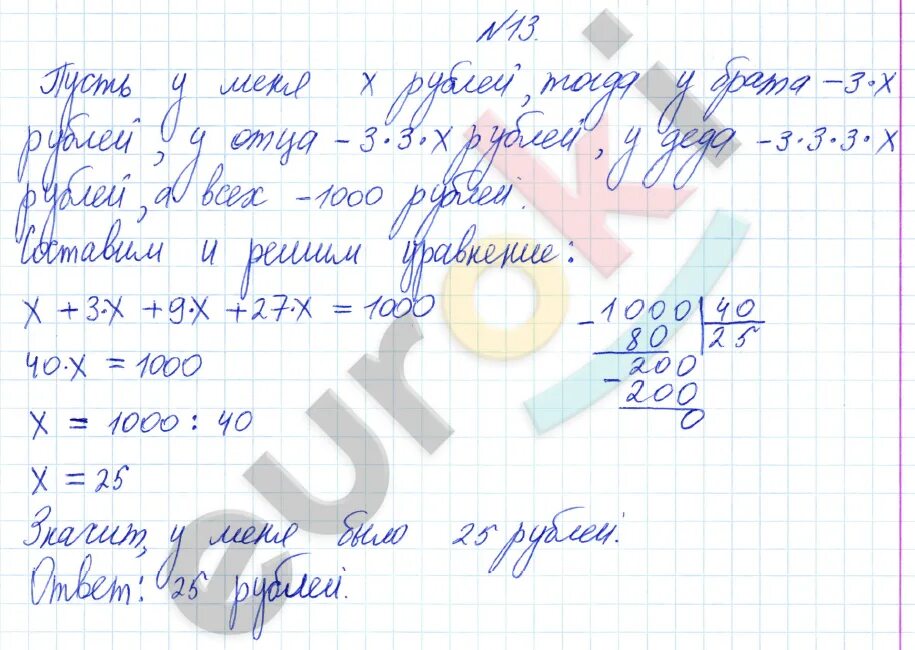 №13.
Пусть у меня x рублей, тогда у брата – 3·x
рублей, у отца – 3·3·x рублей, у деда – 3·3·3·x
рублей, а всех – 1000 рублей.
Составим и решим уравнение:
x + 3·x + 9·x + 27·x = 1000
40·x = 1000
x = 1000 : 40
x = 25
– 1000 | 40
80 25
– 200
200
0
Значит, у меня было 25 рублей.
Ответ: 25 рублей.
euroki